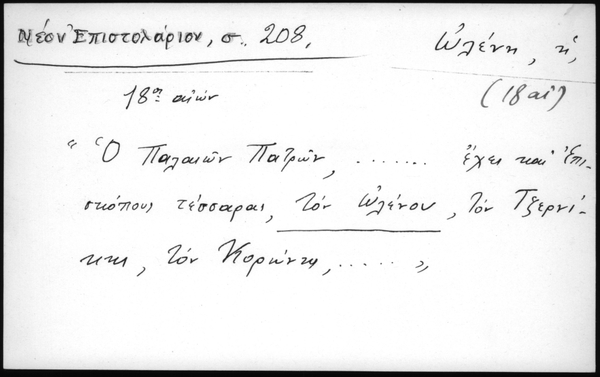 Νέον Ἐπιστολάριον, σ. 208.
Ὠλένη, ἡ,
18ος αἰών
(18 αἰ)
“ Ὁ Παλαιῶν Πατρῶν, ....... ἔχει καὶ Ἐπι-
σκόπους τέσσαρας, τὸν Ὠλένου, τὸν Τζερνί-
κης, τὸν Κορώνης, ..... „